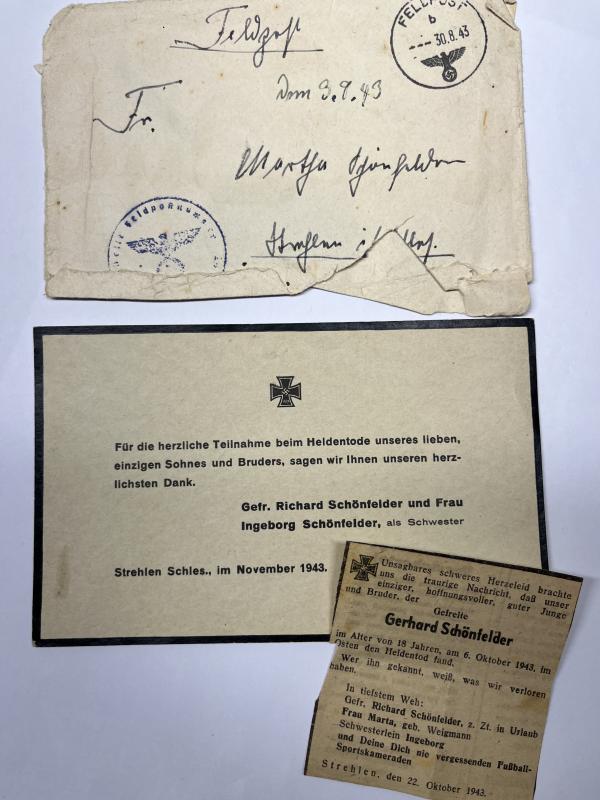 Feldpost
FELDPOST
b
--- 30.8.43
Vom 3.9.43
Fr.
Martha Schönfelder
Strehlen i/Schles.
Feldpostnummer
Für die herzliche Teilnahme beim Heldentode unseres lieben,
einzigen Sohnes und Bruders, sagen wir Ihnen unseren herz-
lichsten Dank.
Gefr. Richard Schönfelder und Frau
Ingeborg Schönfelder, als Schwester
Strehlen Schles., im November 1943.
Unsagbares schweres Herzeleid brachte
uns die traurige Nachricht, daß unser
einziger, hoffnungsvoller, guter Junge
und Bruder, der
Gefreite
Gerhard Schönfelder
im Alter von 18 Jahren, am 6. Oktober 1943, im
Osten den Heldentod fand.
Wer ihn gekannt, weiß, was wir verloren
haben.
In tiefstem Weh:
Gefr. Richard Schönfelder, z. Zt. in Urlaub
Frau Marta, geb. Weigmann
Schwesterlein Ingeborg
und Deine Dich nie vergessenden Fußball-
Sportskameraden
Strehlen, den 22. Oktober 1943.